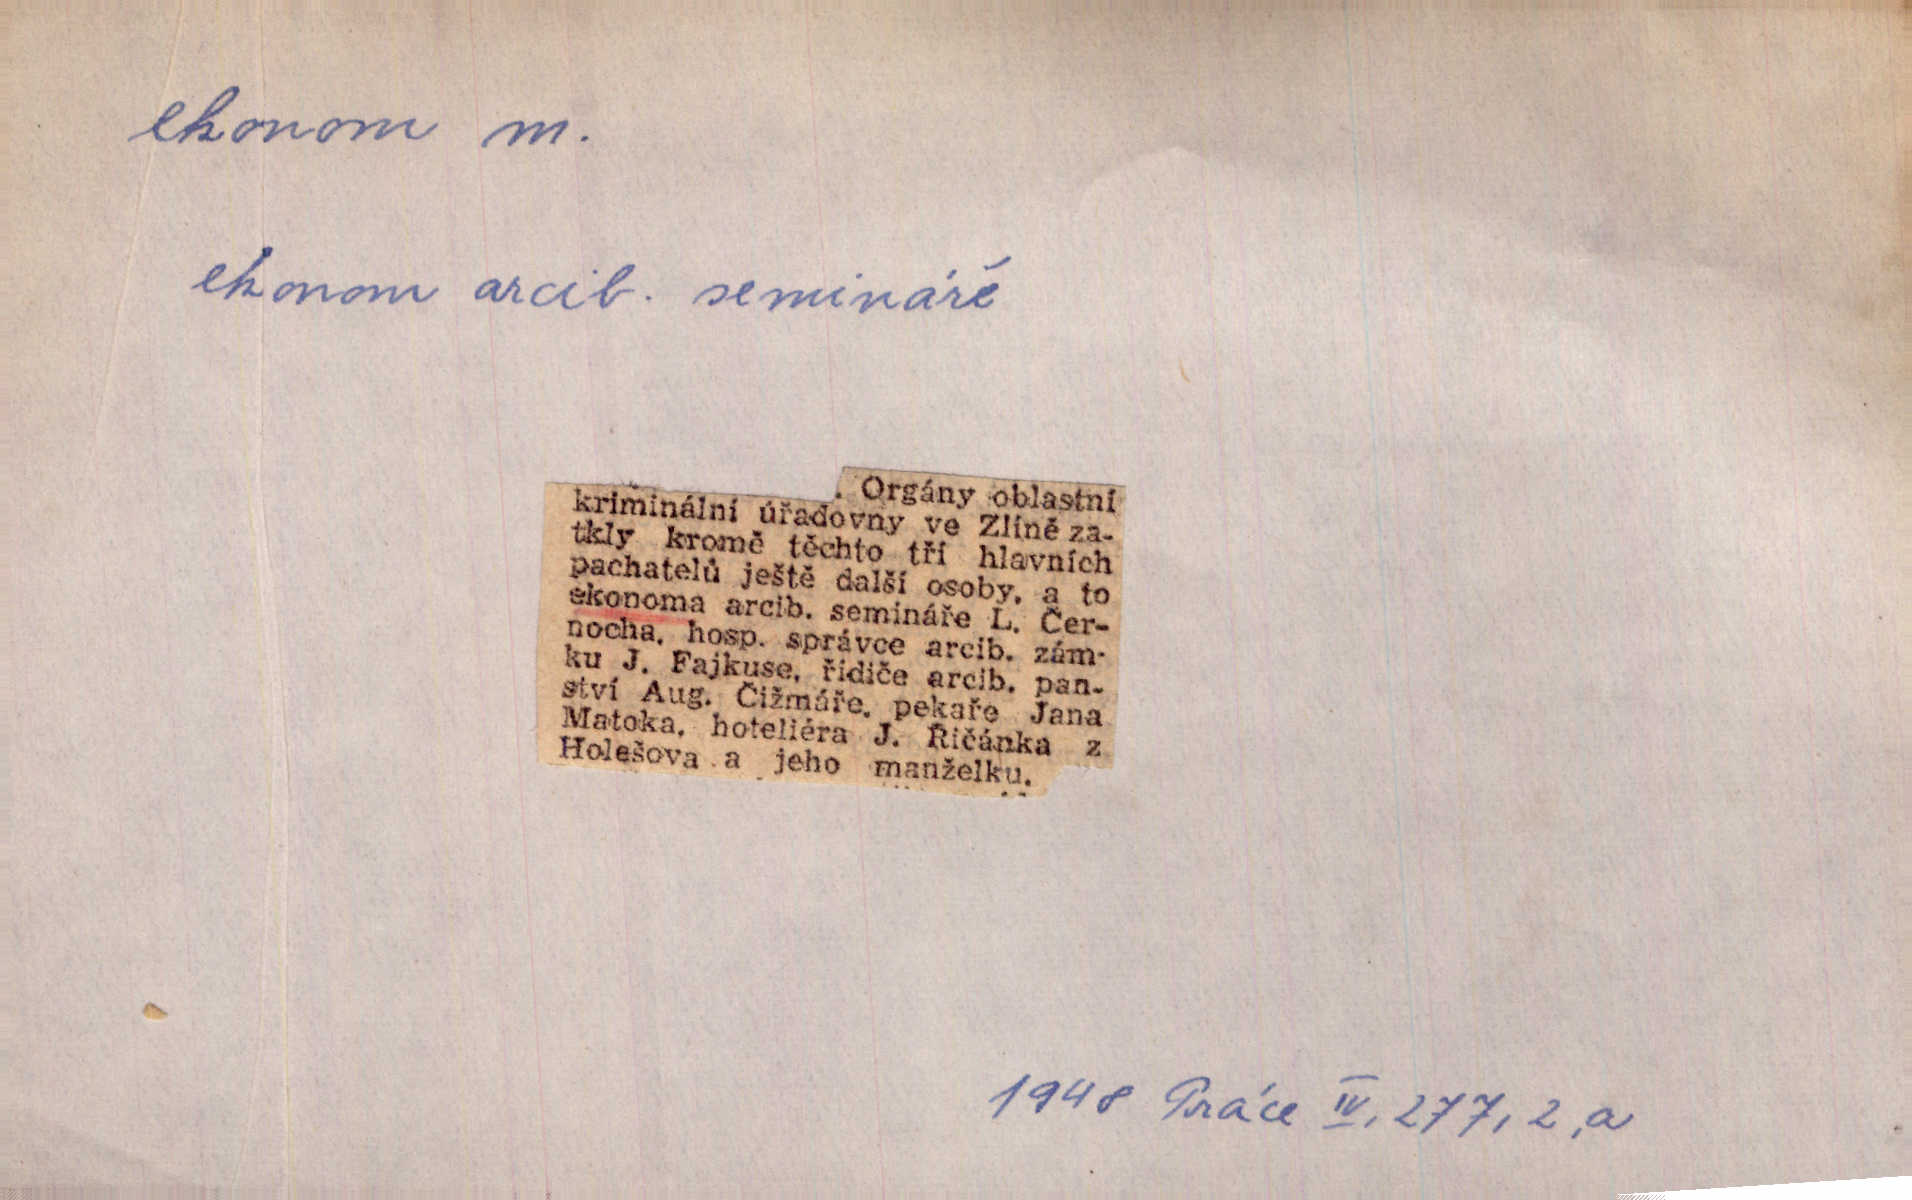 ekonom m.
ekonom arcib. semináře
. Orgány oblastní
kriminální úřadovny ve Zlíně za-
tkly kromě těchto tří hlavních
pachatelů ještě další osoby, a to
ekonoma arcib. semináře L. Čer-
nocha, hosp. správce arcib. zám-
ku J. Fajkuse, řidiče arcib. pan-
ství Aug. Čižmáře, pekaře Jana
Matoka, hoteliéra J. Řičánka z
Holešova a jeho manželku.
1948 Práce IV, 277, 2, a